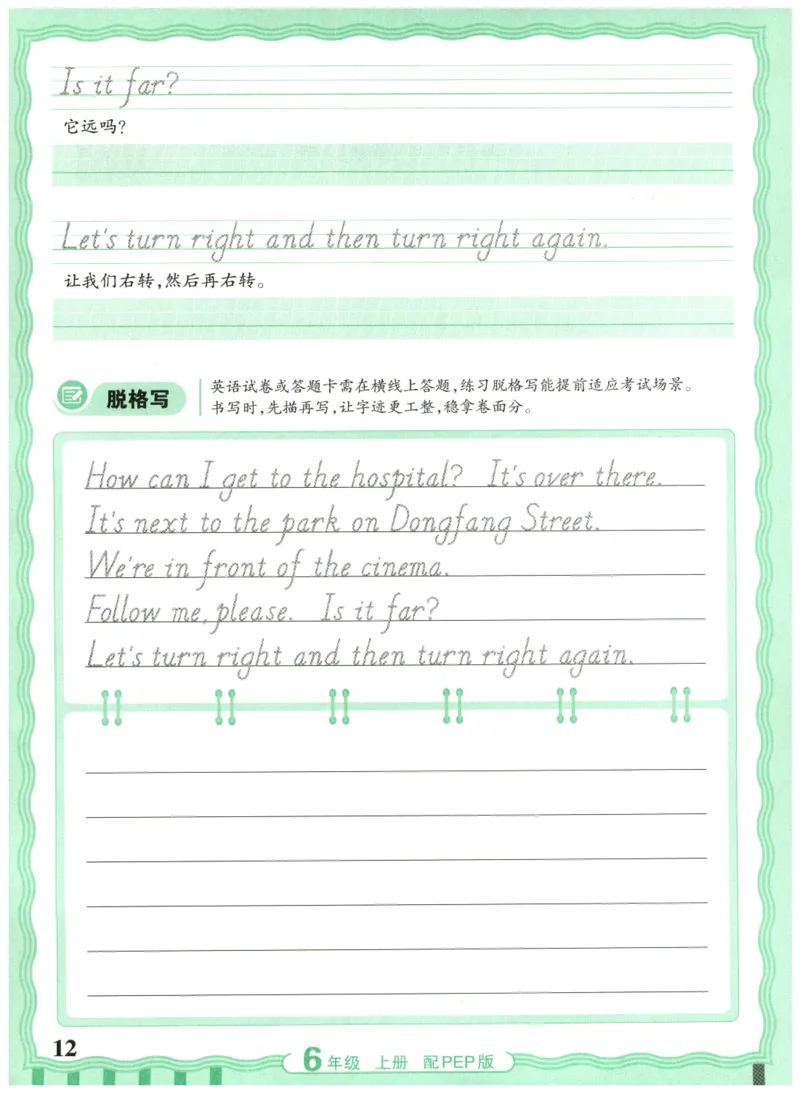 Is it far?
它远吗?
Let's turn right and then turn right again.
让我们右转,然后再右转。
脱格写
英语试卷或答题卡需在横线上答题,练习脱格写能提前适应考试场景。
书写时,先描再写,让字迹更工整,稳拿卷面分。
How can I get to the hospital? It's over there.
It's next to the park on Dongfang Street.
We're in front of the cinema.
Follow me, please. Is it far?
Let's turn right and then turn right again.
12
6年级 上册 配PEP版